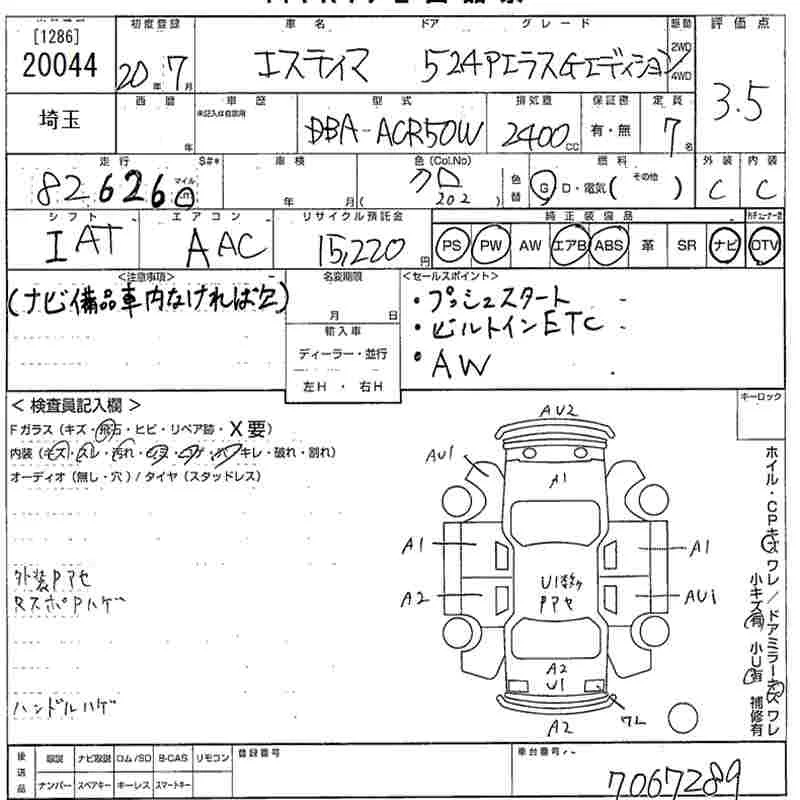 [1286]
20044
埼玉
初度登録
20年 7月
車名 ドア グレード
エスティマ 5 24PエラスGエディション
駆動
2WD
4WD
評価点
3.5
西暦
年
車歴
未記入は自家用
型式
DBA-ACR50W
排気量
2400CC
保証書
有・無
定員
7名
走行
82626
マイル
Km
S#*
車検
年 月(
色(Col.No)
クロ
202 )
色替
燃料
G D・電気( その他 )
外装
C
内装
C
シフト
IAT
エアコン
AAC
リサイクル預託金
15,220円
純正装備品
PS PW AW エアB ABS 革 SR ナビ DTV
<注意事項>
(ナビ備品車内なければ欠)
名変期限
月 日
輸入車
ディーラー・並行
左H ・ 右H
<セールスポイント>
・プッシュスタート
・ビルトインETC
・AW
<検査員記入欄>
Fガラス(キズ・飛石・ヒビ・リペア跡・X要)
内装(キズ・スレ・汚れ・シミ・コゲ・穴・キレ・破れ・割れ)
オーディオ(無し・穴)/タイヤ(スタッドレス)
外装Pアセ
RスポPハゲ
ハンドルハゲ
キーロック
AU2
AU1
A1
A1
A1
A2
U1
Pアセ
AU1
A2
U1
A2
ワレ
ホイル・CPキズ ワレ/ドアミラーキズ ワレ
小キズ有 小U有 補修有
後送品
取説 ナビ取説 ロム/SD B-CAS リモコン
ナンバー スペアキー キーレス スマートキー
登録番号
車台番号
7067289